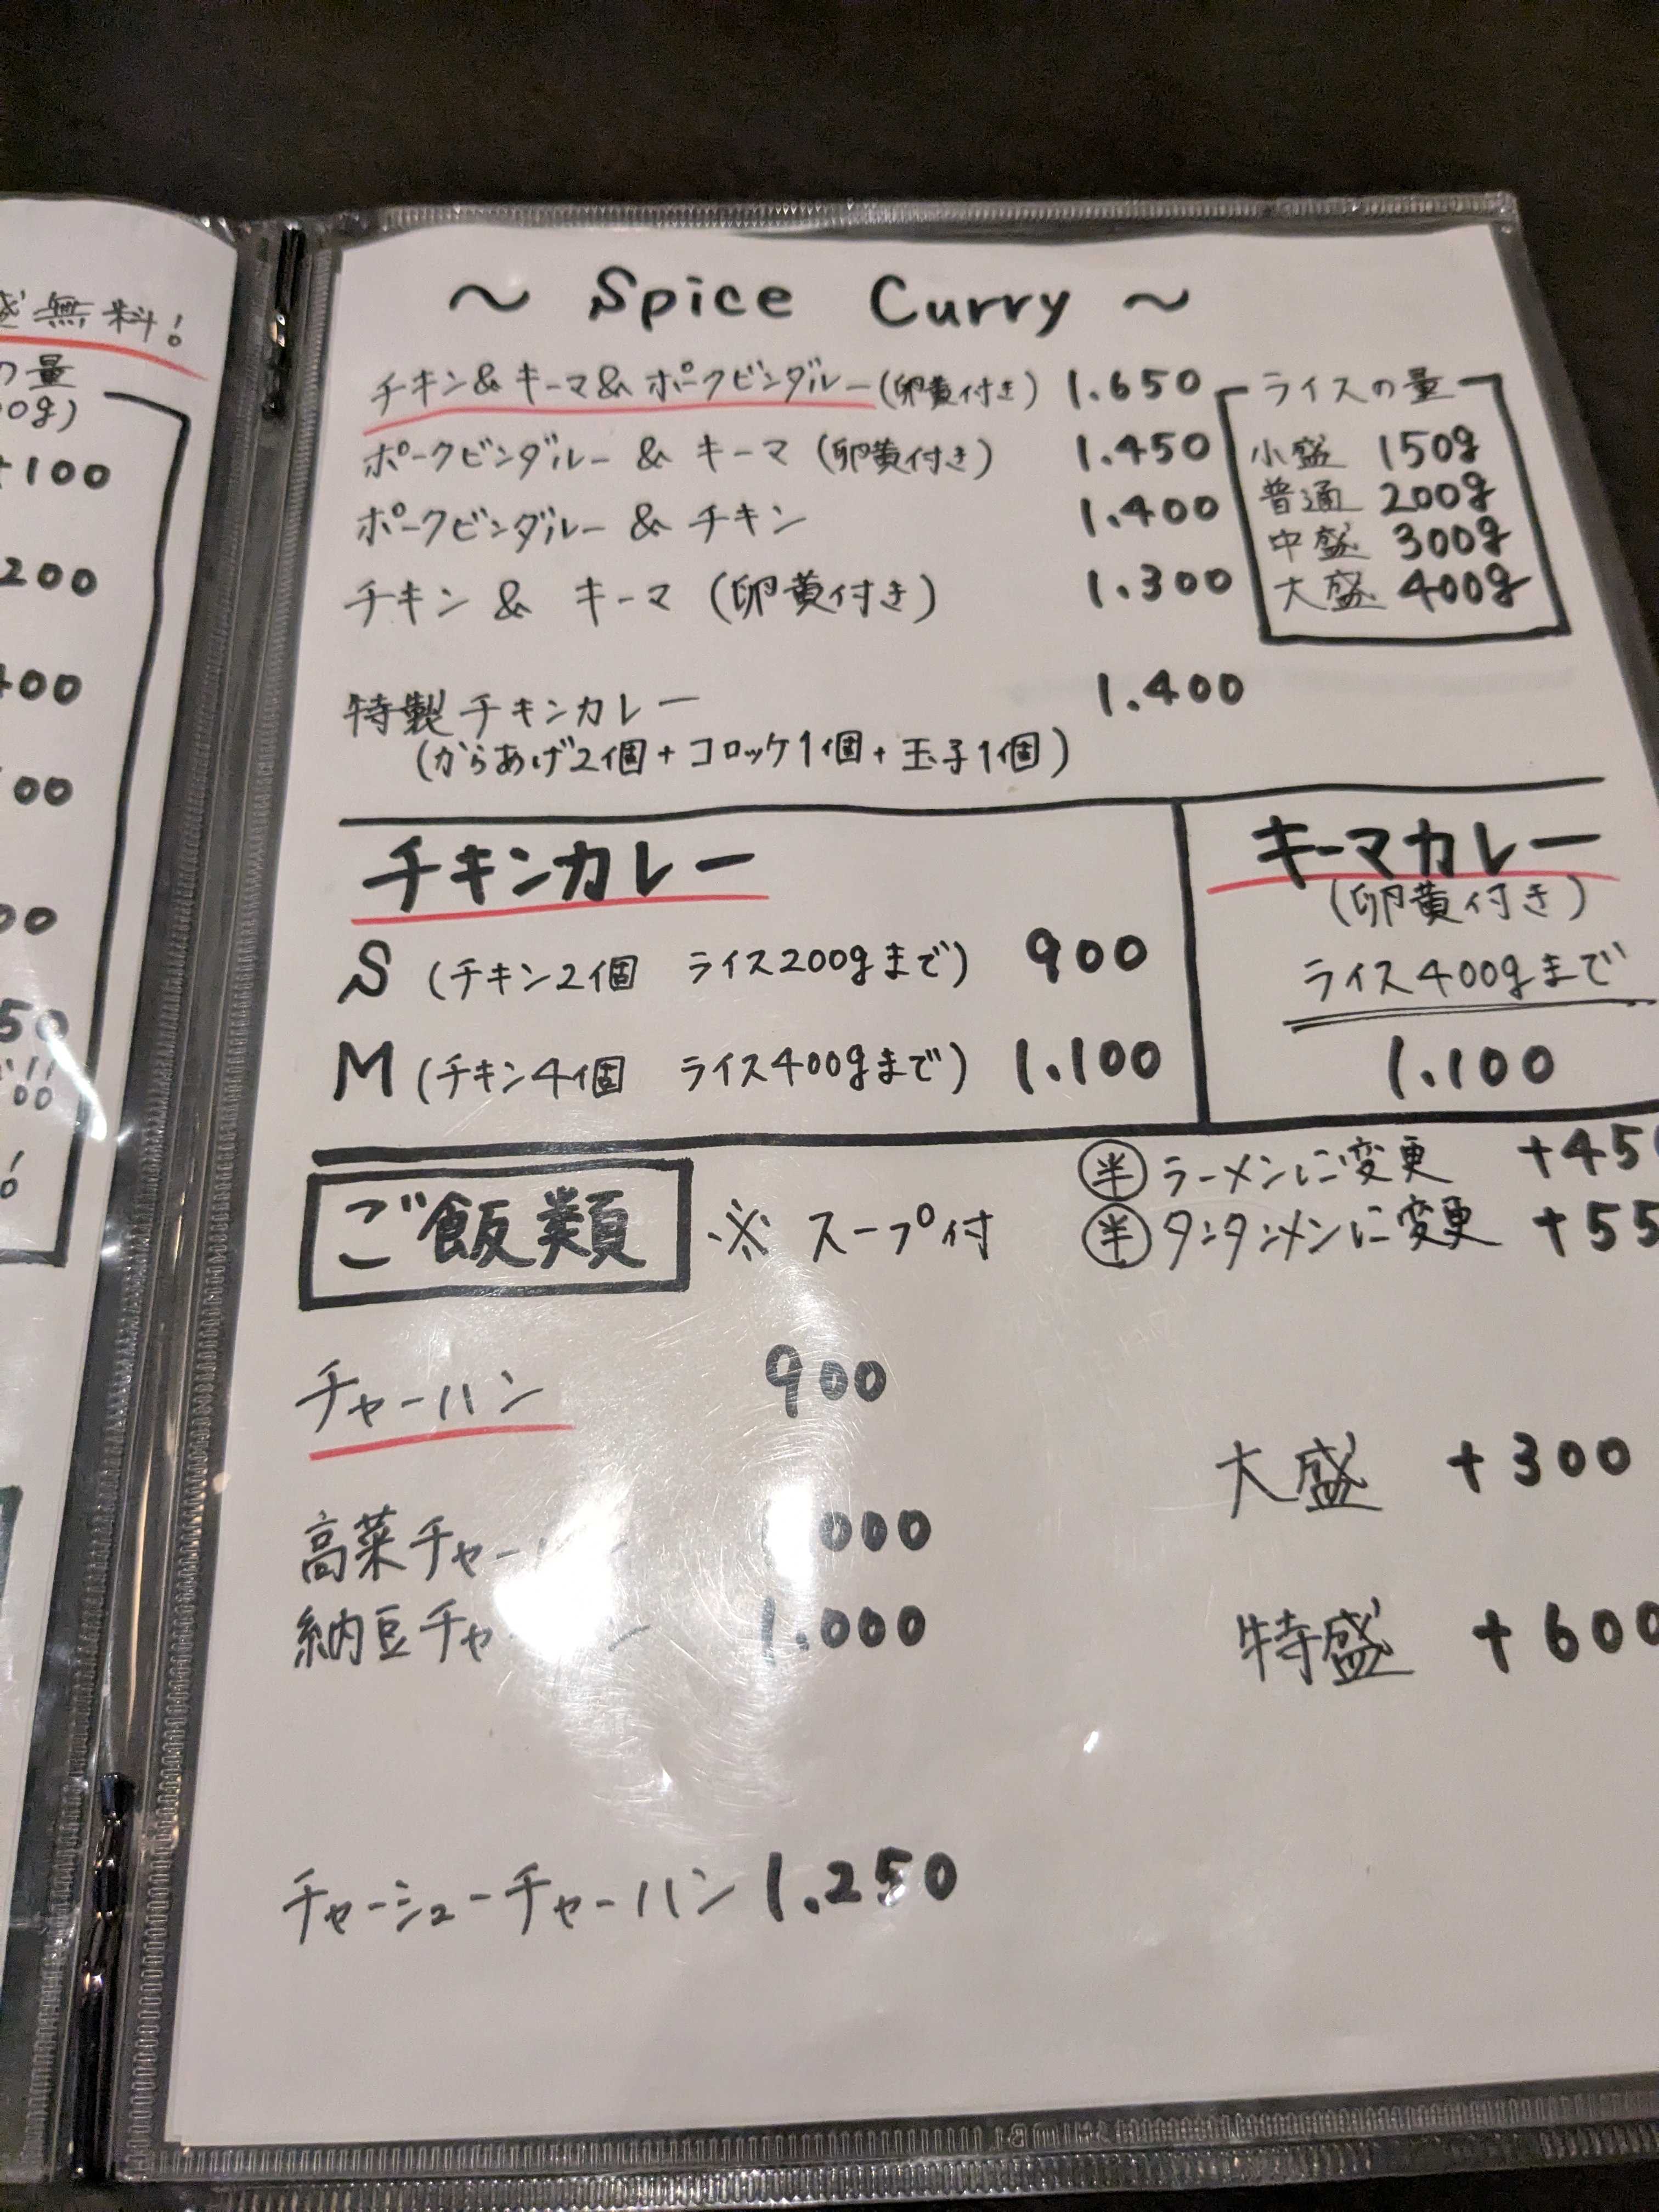 盛無料!
の量
00g)
+100
200
400
00
00
50
00
~ Spice Curry ~
チキン&キーマ&ポークビンダルー(卵黄付き) 1.650
ポークビンダルー & キーマ (卵黄付き) 1.450
ポークビンダルー & チキン 1.400
チキン & キーマ (卵黄付き) 1.300
ライスの量
小盛 150g
普通 200g
中盛 300g
大盛 400g
特製チキンカレー 1.400
(からあげ2個+コロッケ1個+玉子1個)
チキンカレー
S (チキン2個 ライス200gまで) 900
M (チキン4個 ライス400gまで) 1.100
キーマカレー
(卵黄付き)
ライス400gまで
1.100
ご飯類 ※ スープ付
半 ラーメンに変更 +450
半 タンタンメンに変更 +55
チャーハン 900
高菜チャー 000
納豆チャ 1.000
チャーシューチャーハン 1.250
大盛 +300
特盛 +600